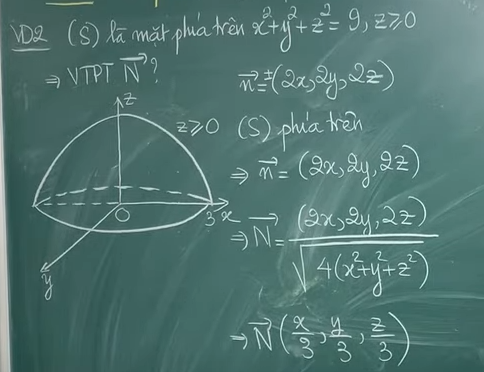 VD2 (S) là mặt phía trên x²+y²+z²=9, z≥0
⇒ VTPT N⃗?
n⃗=±(2x,2y,2z)
z
z≥0
(S) phía trên
⇒ n⃗ = (2x,2y,2z)
O
3 x
y
⇒ N⃗ = (2x,2y,2z)
√4(x²+y²+z²)
⇒ N⃗(x/3, y/3, z/3)